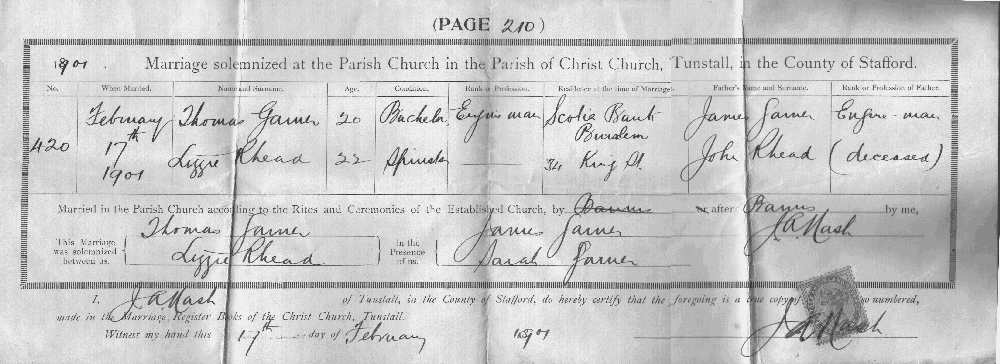 (PAGE 210)
1901. Marriage solemnized at the Parish Church in the Parish of Christ Church, Tunstall, in the County of Stafford.
No. When Married. Name and Surname. Age. Condition. Rank or Profession. Residence at the time of Marriage. Father's Name and Surname. Rank or Profession of Father.
420
February 17th 1901
Thomas Garner 20 Bachelor Engine man Scotia Bank Burslem James Garner Engine-man
Lizzie Rhead 22 Spinster 34 King St. John Rhead (deceased)
Married in the Parish Church according to the Rites and Ceremonies of the Established Church, by Banns or after Banns by me,
This Marriage was solemnized between us, Thomas Garner in the Presence of us, James Garner J A Nash
Lizzie Rhead Sarah Garner
I, J A Nash of Tunstall, in the County of Stafford, do hereby certify that the foregoing is a true copy of so numbered,
made in the Marriage Register Books of the Christ Church, Tunstall.
Witness my hand this 17th day of February 1901 J A Nash